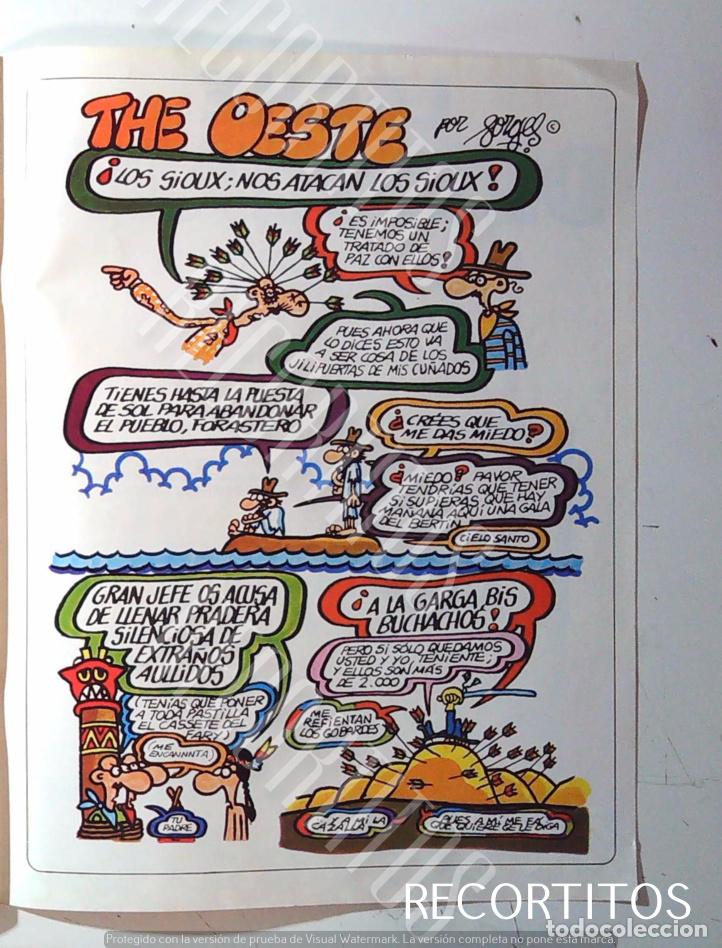 THE OESTE por Gorges ©
¡LOS SIOUX; NOS ATACAN LOS SIOUX!
¡ES IMPOSIBLE;
TENEMOS UN
TRATADO DE
PAZ CON ELLOS!
PUES AHORA QUE
LO DICES ESTO VA
A SER COSA DE LOS
JILIPUERTAS DE MIS CUÑADOS
TIENES HASTA LA PUESTA
DE SOL PARA ABANDONAR
EL PUEBLO, FORASTERO
¿CRÉES QUE
ME DAS MIEDO?
¿MIEDO? PAVOR
TENDRÍAS QUE TENER
SI SUPIERAS QUE HAY
MAÑANA AQUÍ UNA GALA
DEL BERTIN
CIELO SANTO
GRAN JEFE OS ACUSA
DE LLENAR PRADERA
SILENCIOSA DE
EXTRAÑOS
AULLIDOS
¿TENÍAS QUE PONER
A TODA PASTILLA
EL CASSETE DEL
FARY?
(ME
ENCANNNTA)
TU
PADRE
¡A LA GARGA, BIS
BUCHACHOS!
PERO SI SOLO QUEDAMOS
USTED Y YO, TENIENTE;
Y ELLOS SON MAS
DE 2.000
ME
REFIENTAN
LOS GOBARDES
Y A MI LA
CAZALLA
PUES A MI ME
QUE QUIERE QE LE DIGA
RECORTITOS
todocoleccion
Protegido con la versión de prueba de Visual Watermark. La versión completa no pone esta marca.